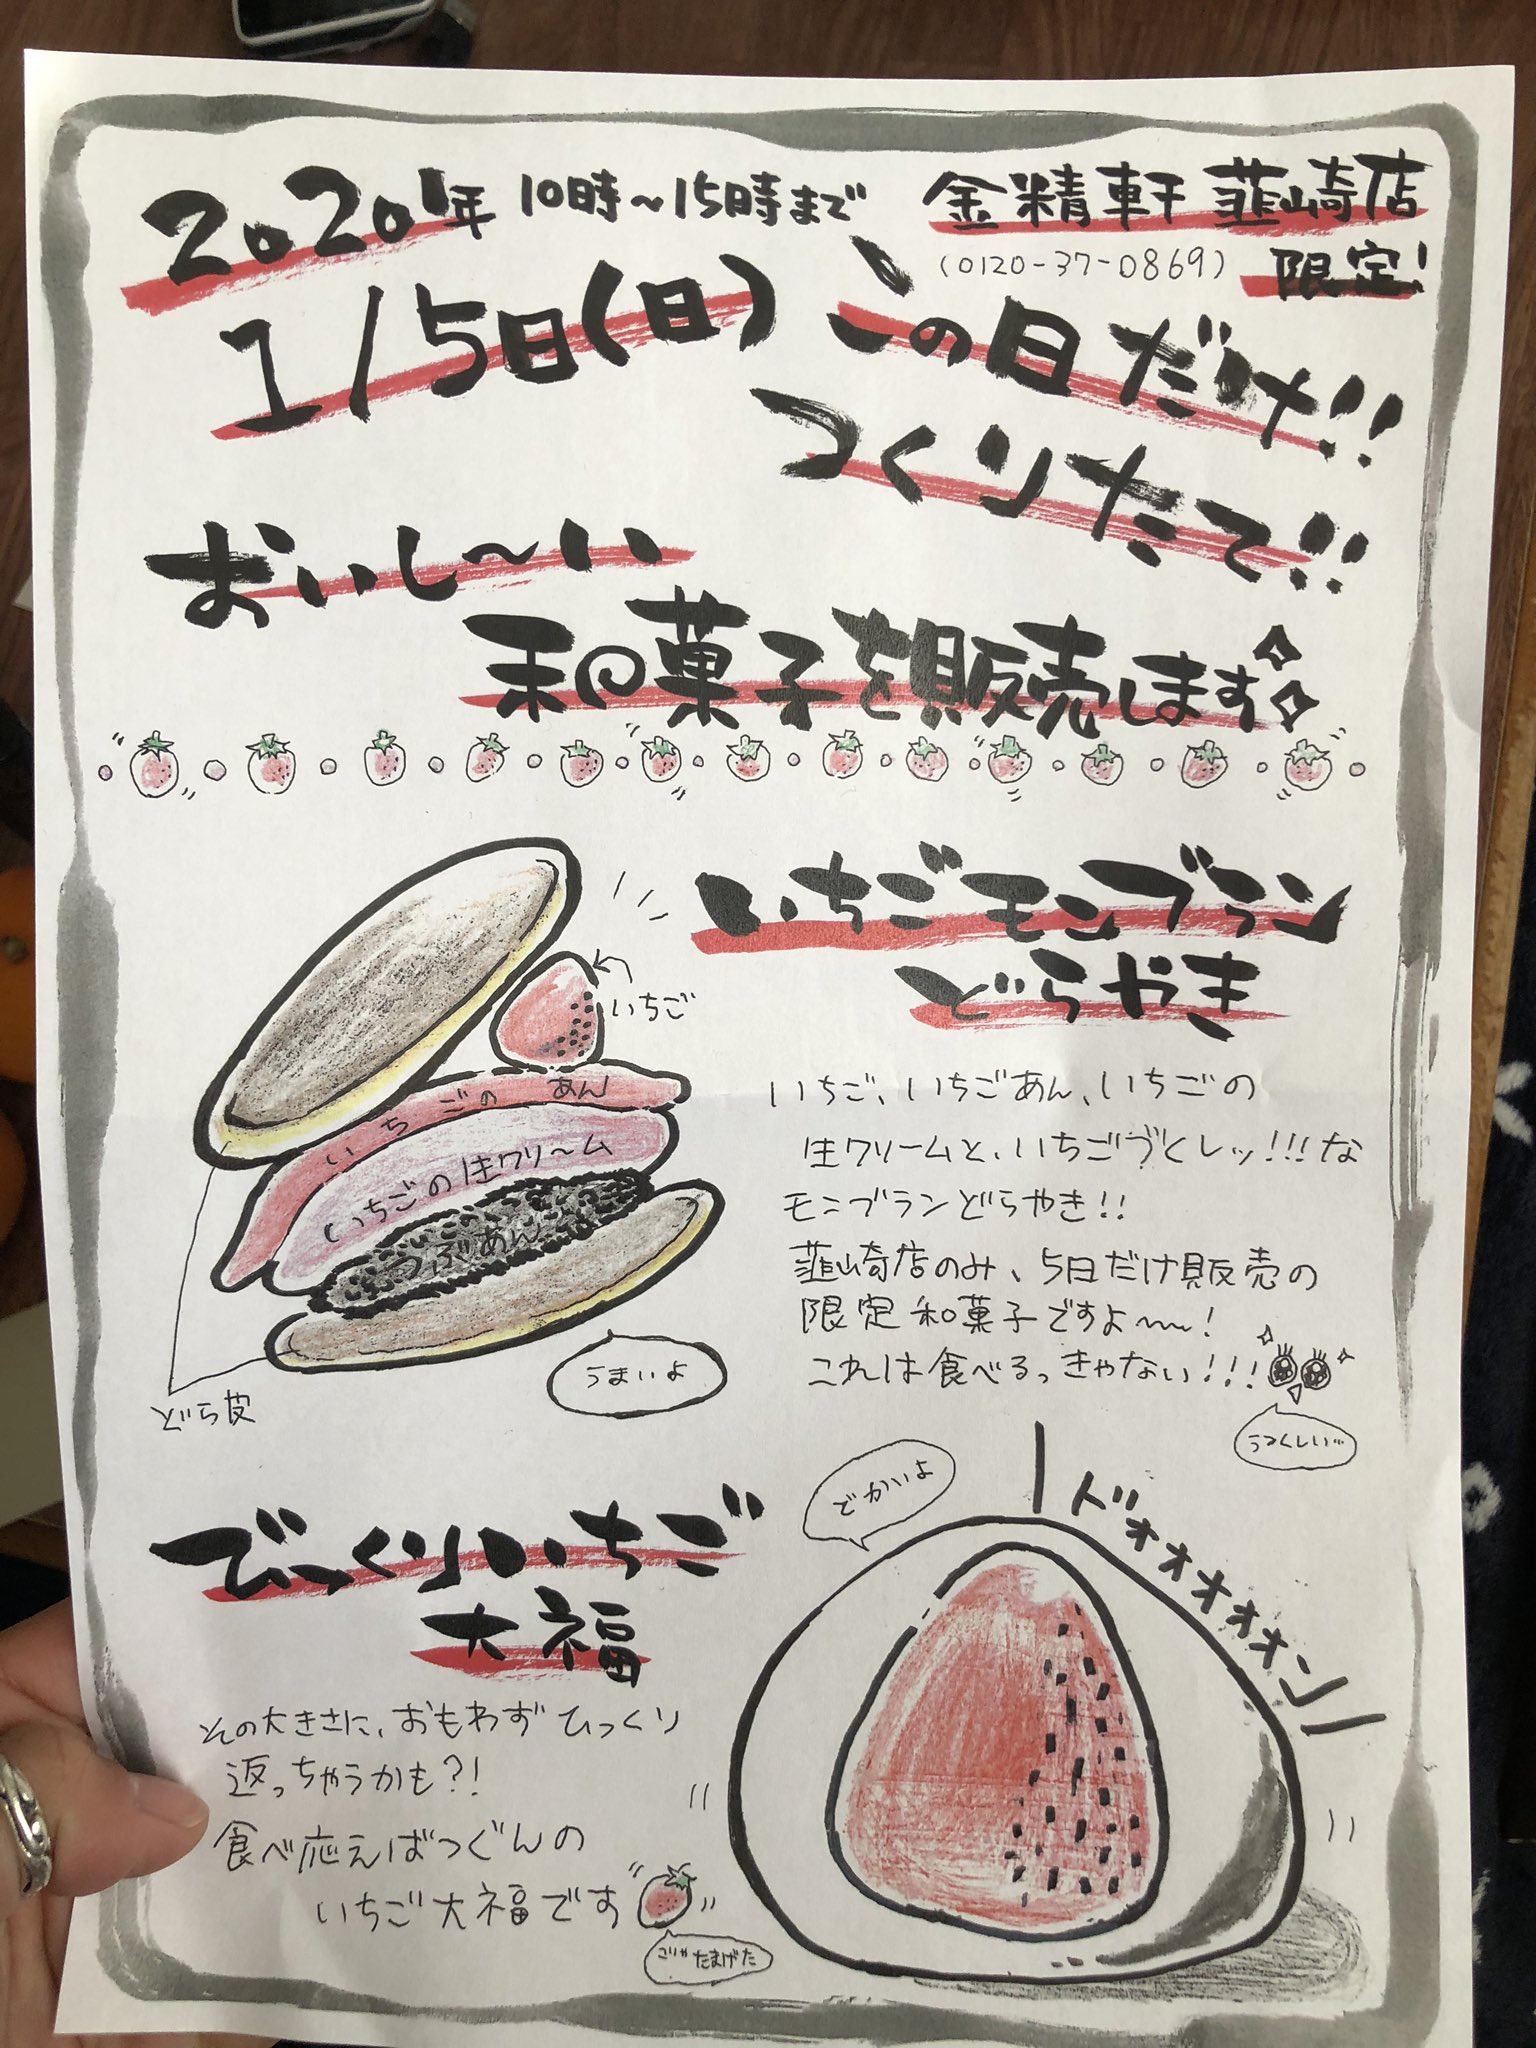 2020年 10時～15時まで
金精軒 韮崎店
(0120-37-0869) 限定!
1/5日(日) この日だけ!!
つくりたて!!
おいし～い
和菓子を販売します
いちごモンブラン
どらやき
いちご
いちごのあん
いちごの生クリーム
つぶあん
どら皮
うまいよ
いちご、いちごあん、いちごの
生クリームと、いちごづくしッ!!!な
モンブランどらやき!!
韮崎店のみ、5日だけ販売の
限定和菓子ですよ～!
これは食べるっきゃない!!!
うつくしい…
びっくりいちご
大福
その大きさに、おもわずひっくり
返っちゃうかも?!
食べ応えばつぐんの
いちご大福です
ごりゃたまげた
でかいよ
ドォォォォォン